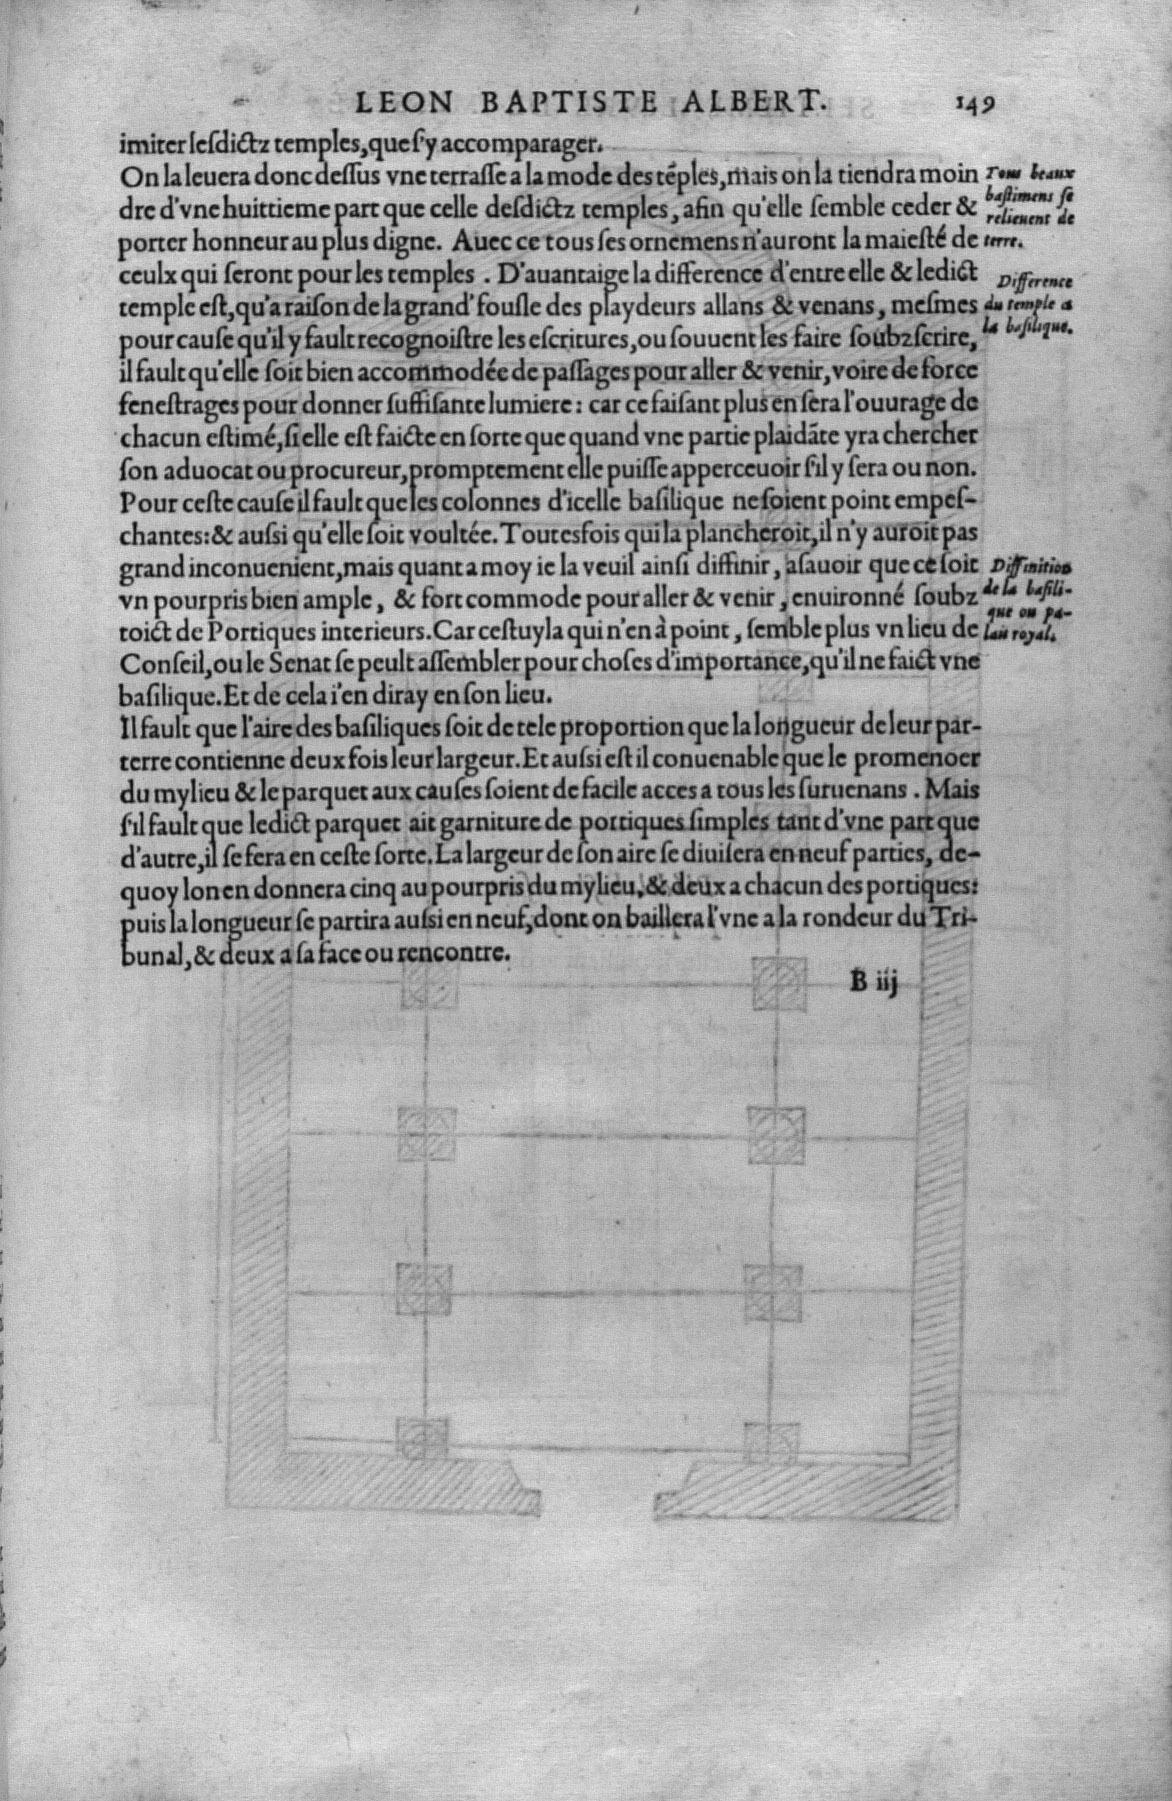 LEON BAPTISTE ALBERT. 149
imiter lesdictz temples, que s'y accomparager.
On la leuera donc dessus vne terrasse a la mode des tẽples, mais on la tiendra moin
dre d'vne huittieme part que celle desdictz temples, afin qu'elle semble ceder &
porter honneur au plus digne. Auec ce tous ses ornemens n'auront la maiesté de
ceulx qui seront pour les temples. D'auantaige la difference d'entre elle & ledict
temple est, qu'a raison de la grand' foulle des playdeurs allans & venans, mesmes
pour cause qu'il y fault recognoistre les escritures, ou souuent les faire soubzscrire,
il fault qu'elle soit bien accommodée de passages pour aller & venir, voire de force
fenestrages pour donner suffisante lumiere: car ce faisant plus en sera l'ouurage de
chacun estimé, si elle est faicte en sorte que quand vne partie plaidãte yra chercher
son aduocat ou procureur, promptement elle puisse apperceuoir s'il y sera ou non.
Pour ceste cause il fault que les colonnes d'icelle basilique ne soient point empes-
chantes: & aussi qu'elle soit voultée. Toutesfois qui la plancheroit, il n'y auroit pas
grand inconuenient, mais quant a moy ie la veuil ainsi diffinir, asauoir que ce soit
vn pourpris bien ample, & fort commode pour aller & venir, enuironné soubz
toict de Portiques interieurs. Car cestuyla qui n'en à point, semble plus vn lieu de
Conseil, ou le Senat se peult assembler pour choses d'importance, qu'il ne faict vne
basilique. Et de cela i'en diray en son lieu.
Il fault que l'aire des basiliques soit de tele proportion que la longueur de leur par-
terre contienne deux fois leur largeur. Et aussi est il conuenable que le promenoer
du mylieu & le parquet aux causes soient de facile acces a tous les suruenans. Mais
s'il fault que ledict parquet ait garniture de portiques simples tant d'vne part que
d'autre, il se fera en ceste sorte. La largeur de son aire se diuisera en neuf parties, de-
quoy lon en donnera cinq au pourpris du mylieu, & deux a chacun des portiques:
puis la longueur se partira aussi en neuf, dont on baillera l'vne a la rondeur du Tri-
bunal, & deux a sa face ou rencontre.
B iij
Tous beaux
bastimens se
relieuent de
terre.
Difference
du temple a
la basilique.
Diffinition
de la basili-
que ou pa-
lais royal.